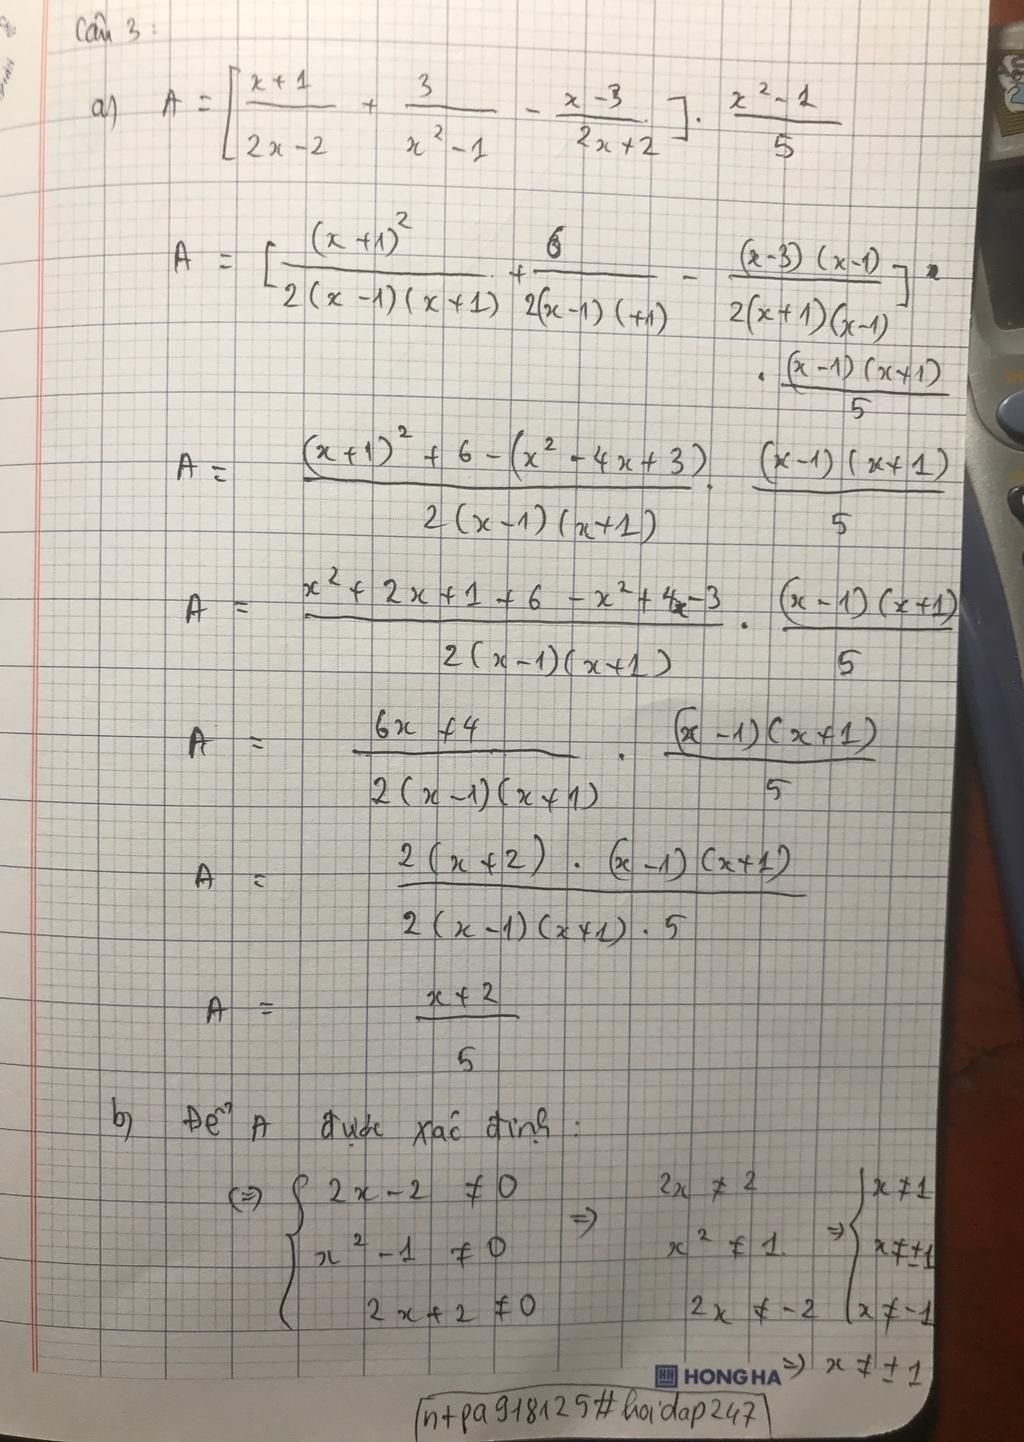 Câu 3:
a) A = [ (x+1)/(2x-2) + 3/(x²-1) - (x-3)/(2x+2) ] . (x²-1)/5
A = [ (x+1)²/(2(x-1)(x+1)) + 6/(2(x-1)(+1)) - (x-3)(x-1)/(2(x+1)(x-1)) ]
. (x-1)(x+1)/5
A = ((x+1)² + 6 - (x² - 4x + 3))/(2(x-1)(x+1)) . (x-1)(x+1)/5
A = (x² + 2x + 1 + 6 - x² + 4x - 3)/(2(x-1)(x+1)) . (x-1)(x+1)/5
A = (6x + 4)/(2(x-1)(x+1)) . (x-1)(x+1)/5
A = (2(x+2) . (x-1)(x+1))/(2(x-1)(x+1) . 5)
A = (x+2)/5
b) Để A được xác định:
(=) { 2x-2 ≠ 0 => 2x ≠ 2 => { x ≠ 1
x² - 1 ≠ 0 x² ≠ 1 x ≠ ±1
2x+2 ≠ 0 2x ≠ -2 x ≠ -1
HONG HA => x ≠ ±1
ntpa918125#hoidap247